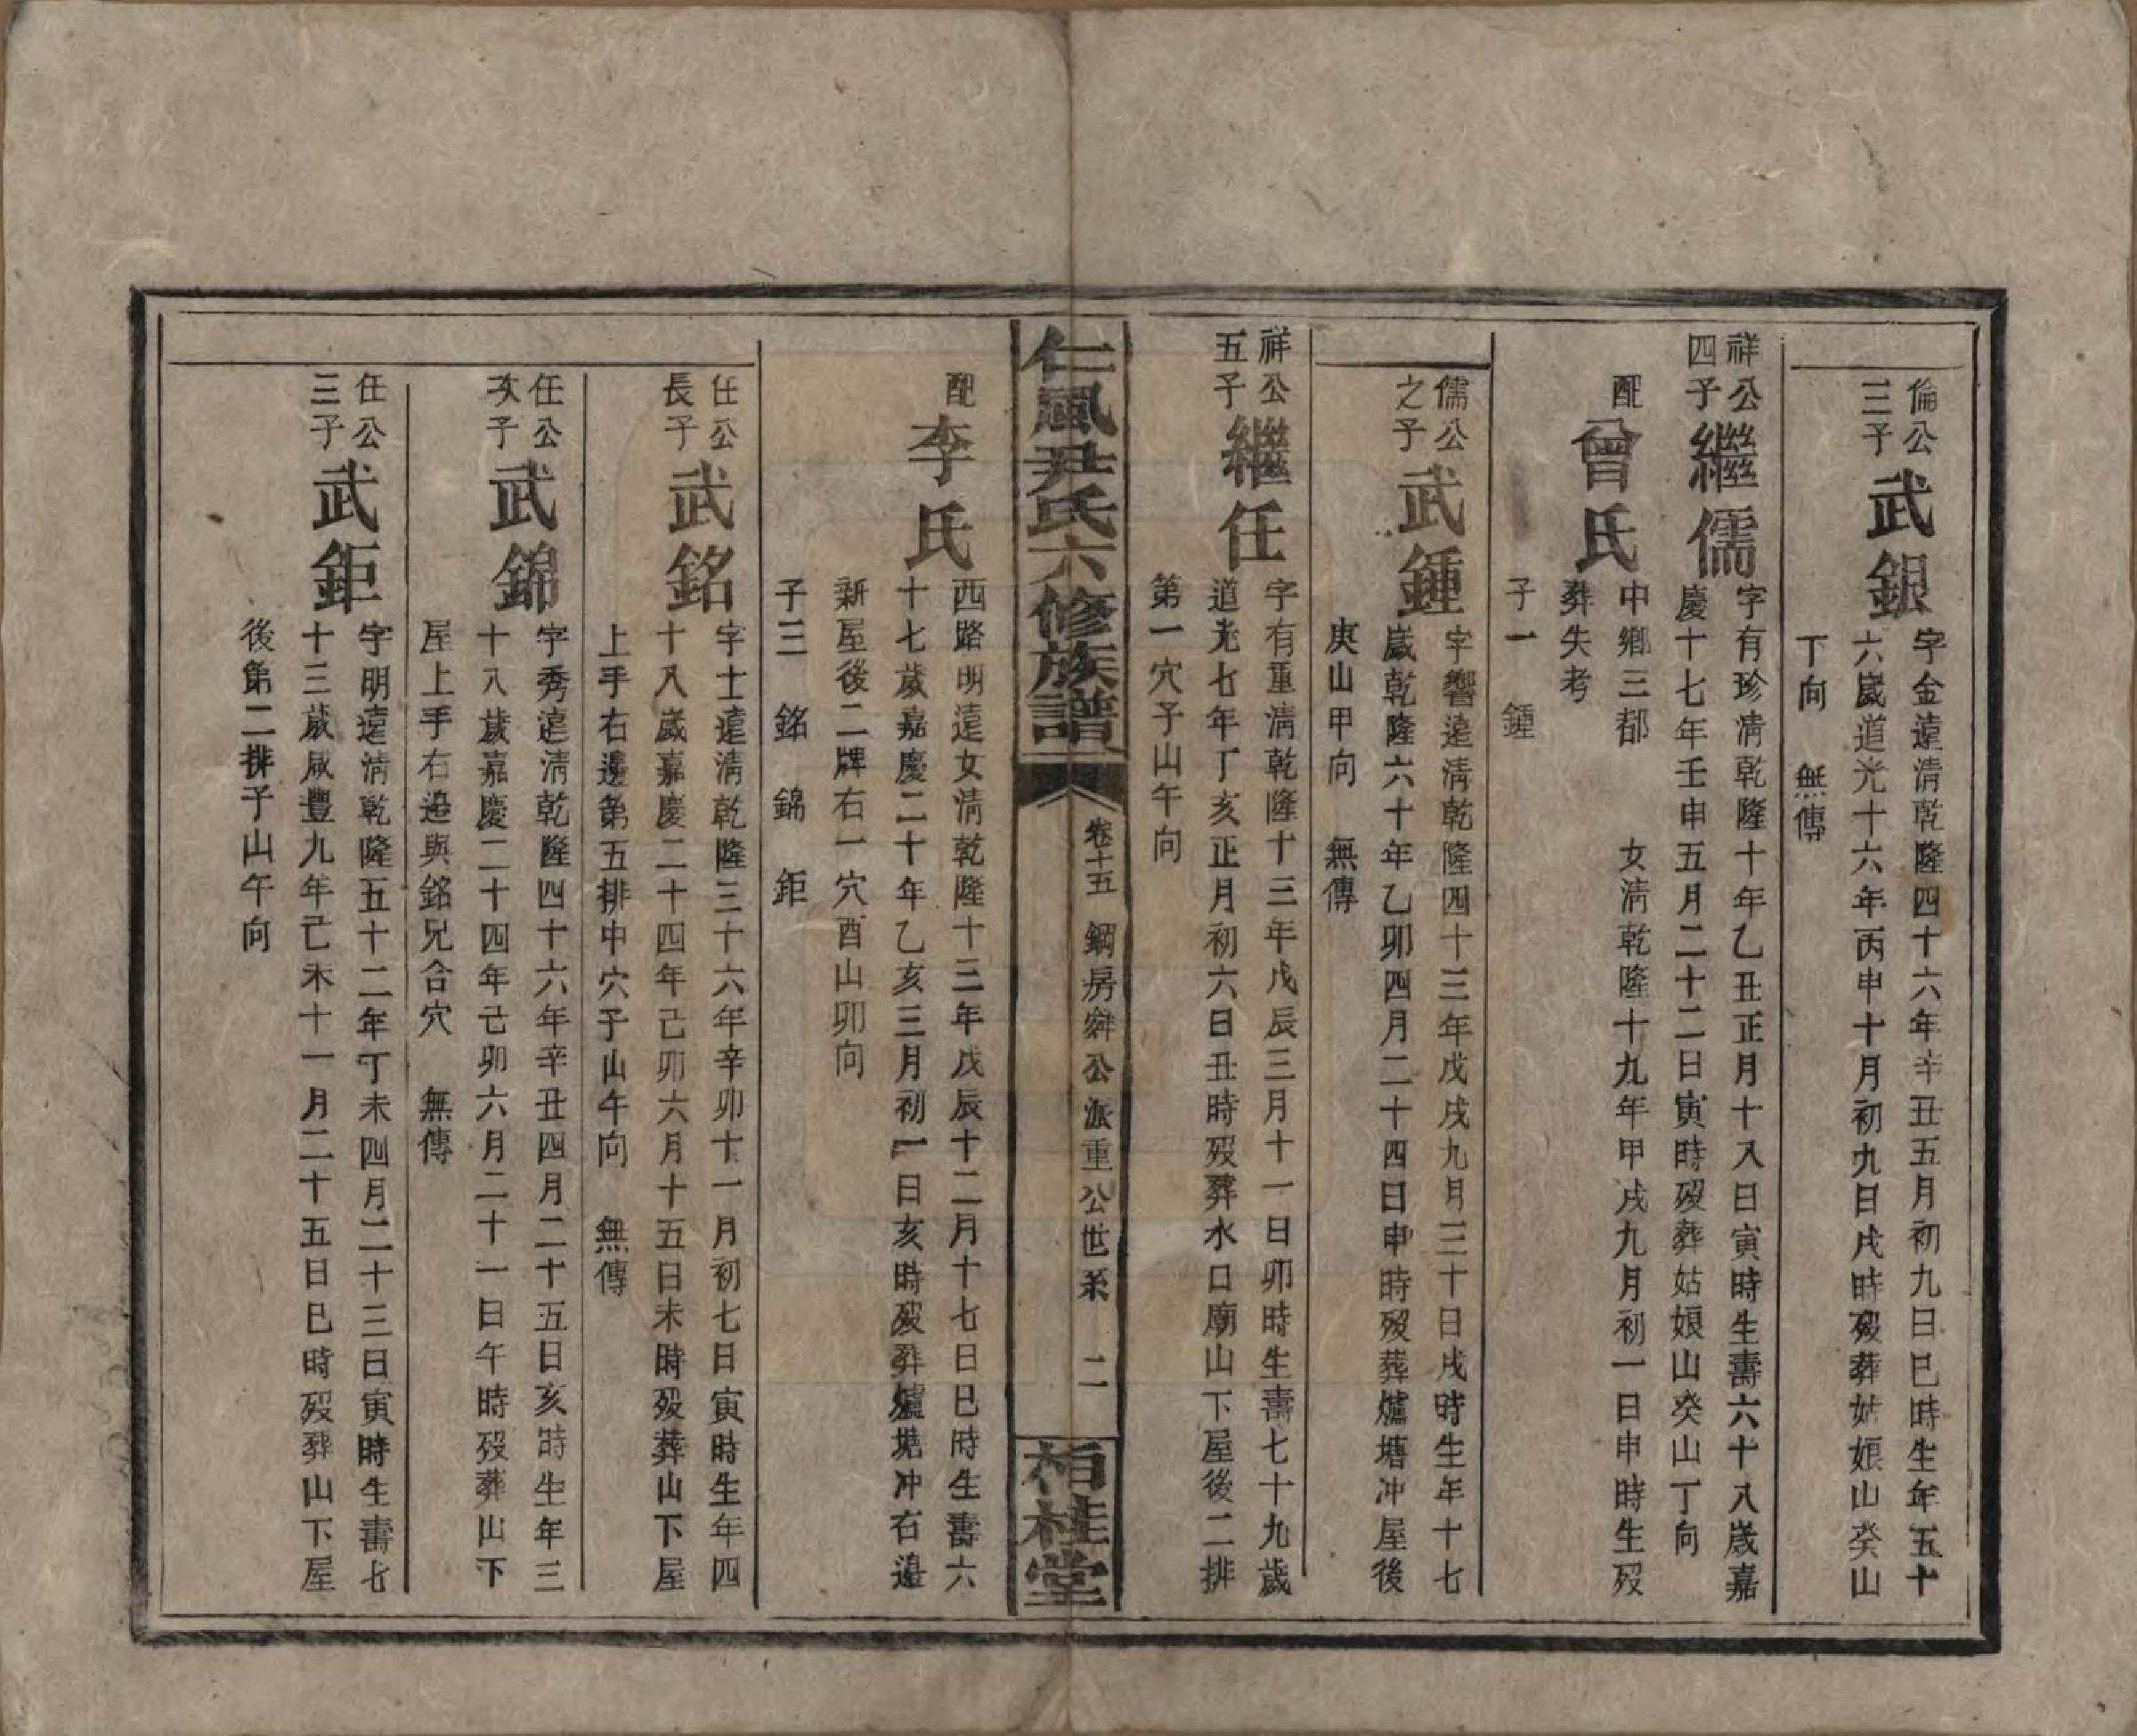 倫公
三子
武銀
字金遠清乾隆四十六年辛丑五月初九日巳時生年五十
六歲道光十六年丙申十月初九日戌時歿葬姑娘山癸山
丁向　無傳
祥公
四子
繼儒
字有珍清乾隆十年乙丑正月十八日寅時生壽六十八歲嘉
慶十七年壬申五月二十二日寅時歿葬姑娘山癸山丁向
配
曾氏
中鄉三都　　女清乾隆十九年甲戌九月初一日申時生歿
葬失考
子一　鍾
儒公
之子
武鍾
字響遠清乾隆四十三年戊戌九月三十日戌時生年十七
歲乾隆六十年乙卯四月二十四日申時歿葬爐塘冲屋後
庚山甲向　無傳
祥公
五子
繼任
字有重清乾隆十三年戊辰三月十一日卯時生壽七十九歲
道光七年丁亥正月初六日丑時歿葬水口廟山下屋後二排
第一穴子山午向
仁風尹氏六修族譜
卷十五　鋼房舜公派重公世系　二
栢桂堂
配
李氏
西路明遠女清乾隆十三年戊辰十二月十七日巳時生壽六
十七歲嘉慶二十年乙亥三月初一日亥時歿葬爐塘冲右邊
新屋後二牌右一穴酉山卯向
子三　銘　錦　鉅
任公
長子
武銘
字士遠清乾隆三十六年辛卯十一月初七日寅時生年四
十八歲嘉慶二十四年己卯六月十五日未時歿葬山下屋
上手右邊第五排中穴子山午向　無傳
任公
次子
武錦
字秀遠清乾隆四十六年辛丑四月二十五日亥時生年三
十八歲嘉慶二十四年己卯六月二十一日午時歿葬山下
屋上手右邊與銘兄合穴　無傳
任公
三子
武鉅
字明遠清乾隆五十二年丁未四月二十三日寅時生壽七
十三歲咸豐九年己未十一月二十五日巳時歿葬山下屋
後第二排子山午向